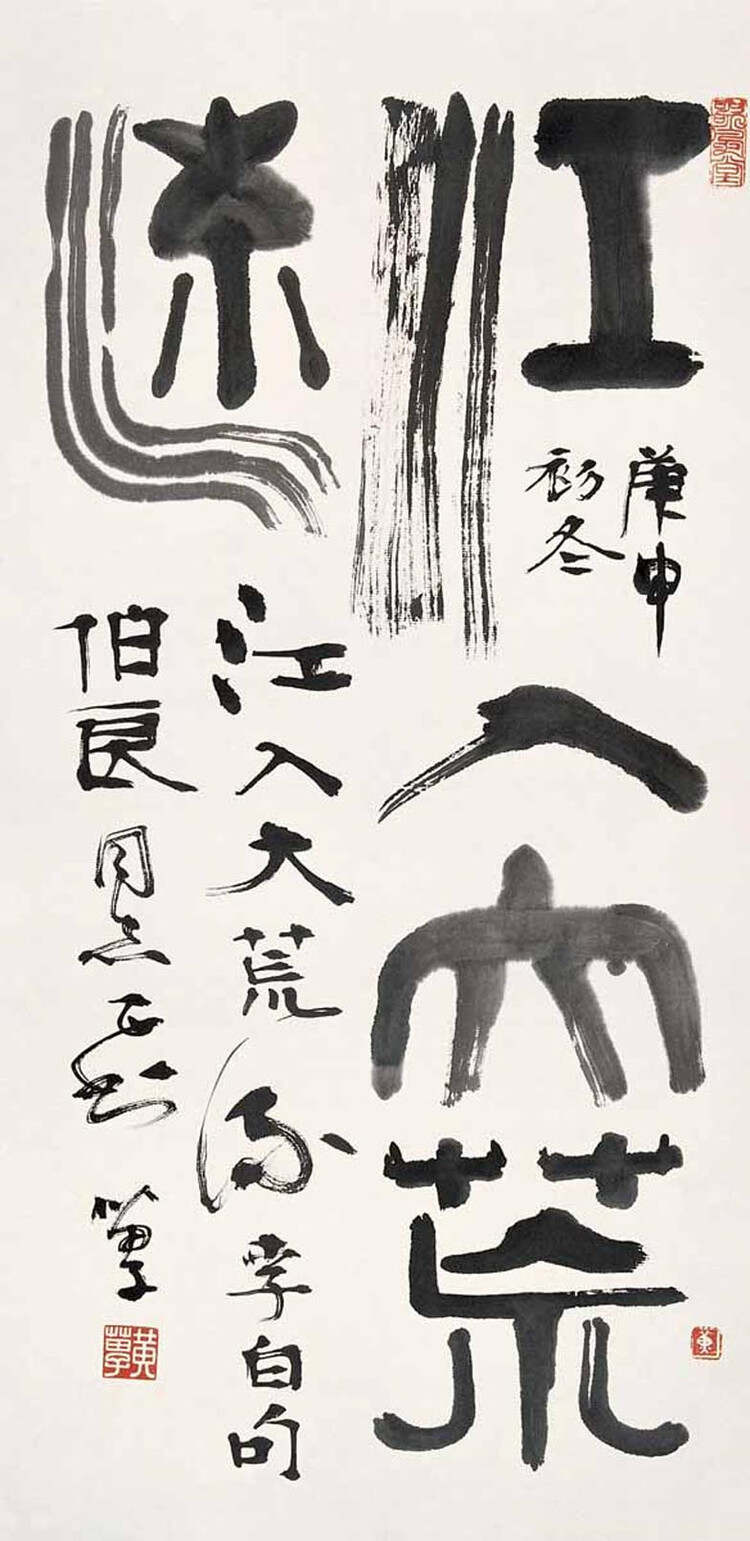 江入大荒
流
庚申
初冬
江入大荒流李白句
伯良同志正书苗子
黄苗子